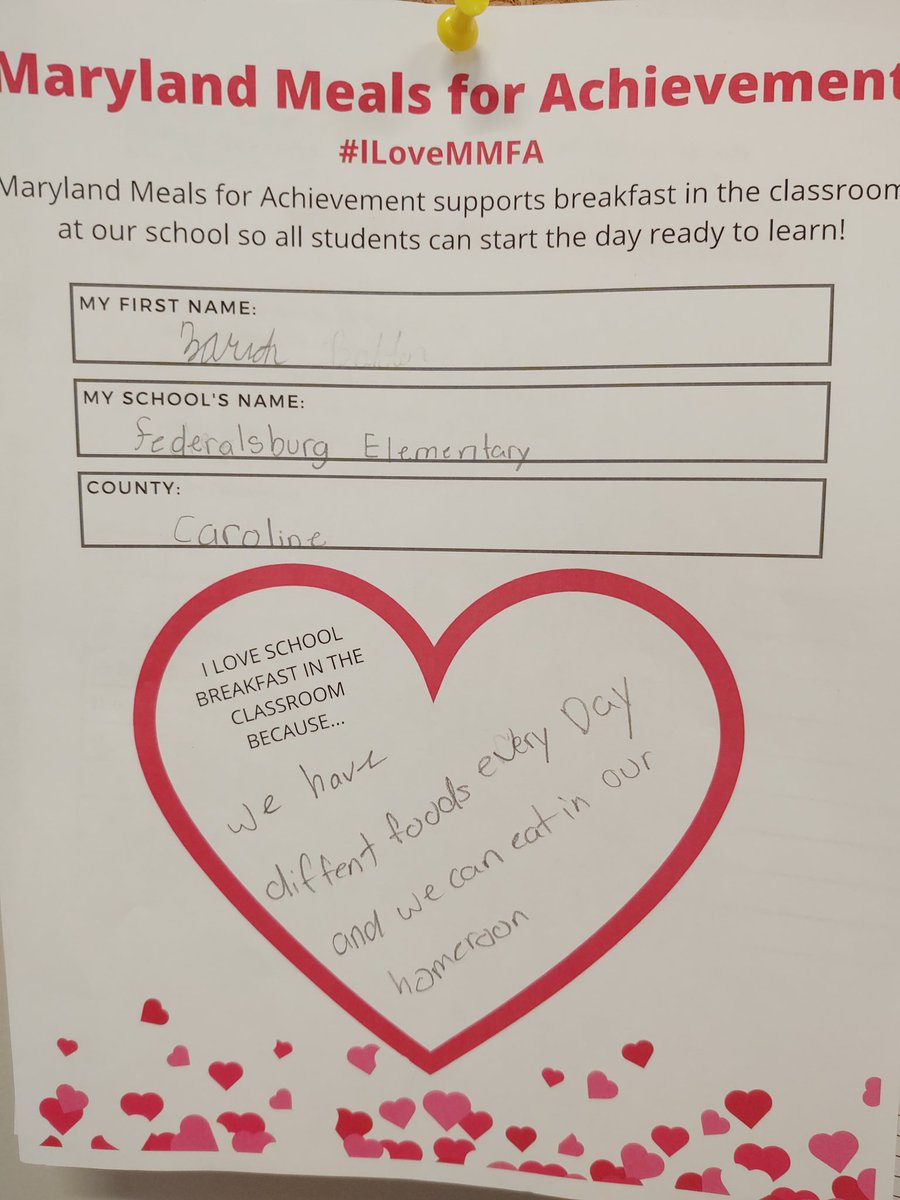 Maryland Meals for Achievement
#ILoveMMFA
Maryland Meals for Achievement supports breakfast in the classroom
at our school so all students can start the day ready to learn!
MY FIRST NAME:
MY SCHOOL'S NAME:
federalsburg Elementary
COUNTY:
Caroline
I LOVE SCHOOL
BREAKFAST IN THE
CLASSROOM
BECAUSE...
we have
diffent foods every Day
and we can eat in our
homeroon